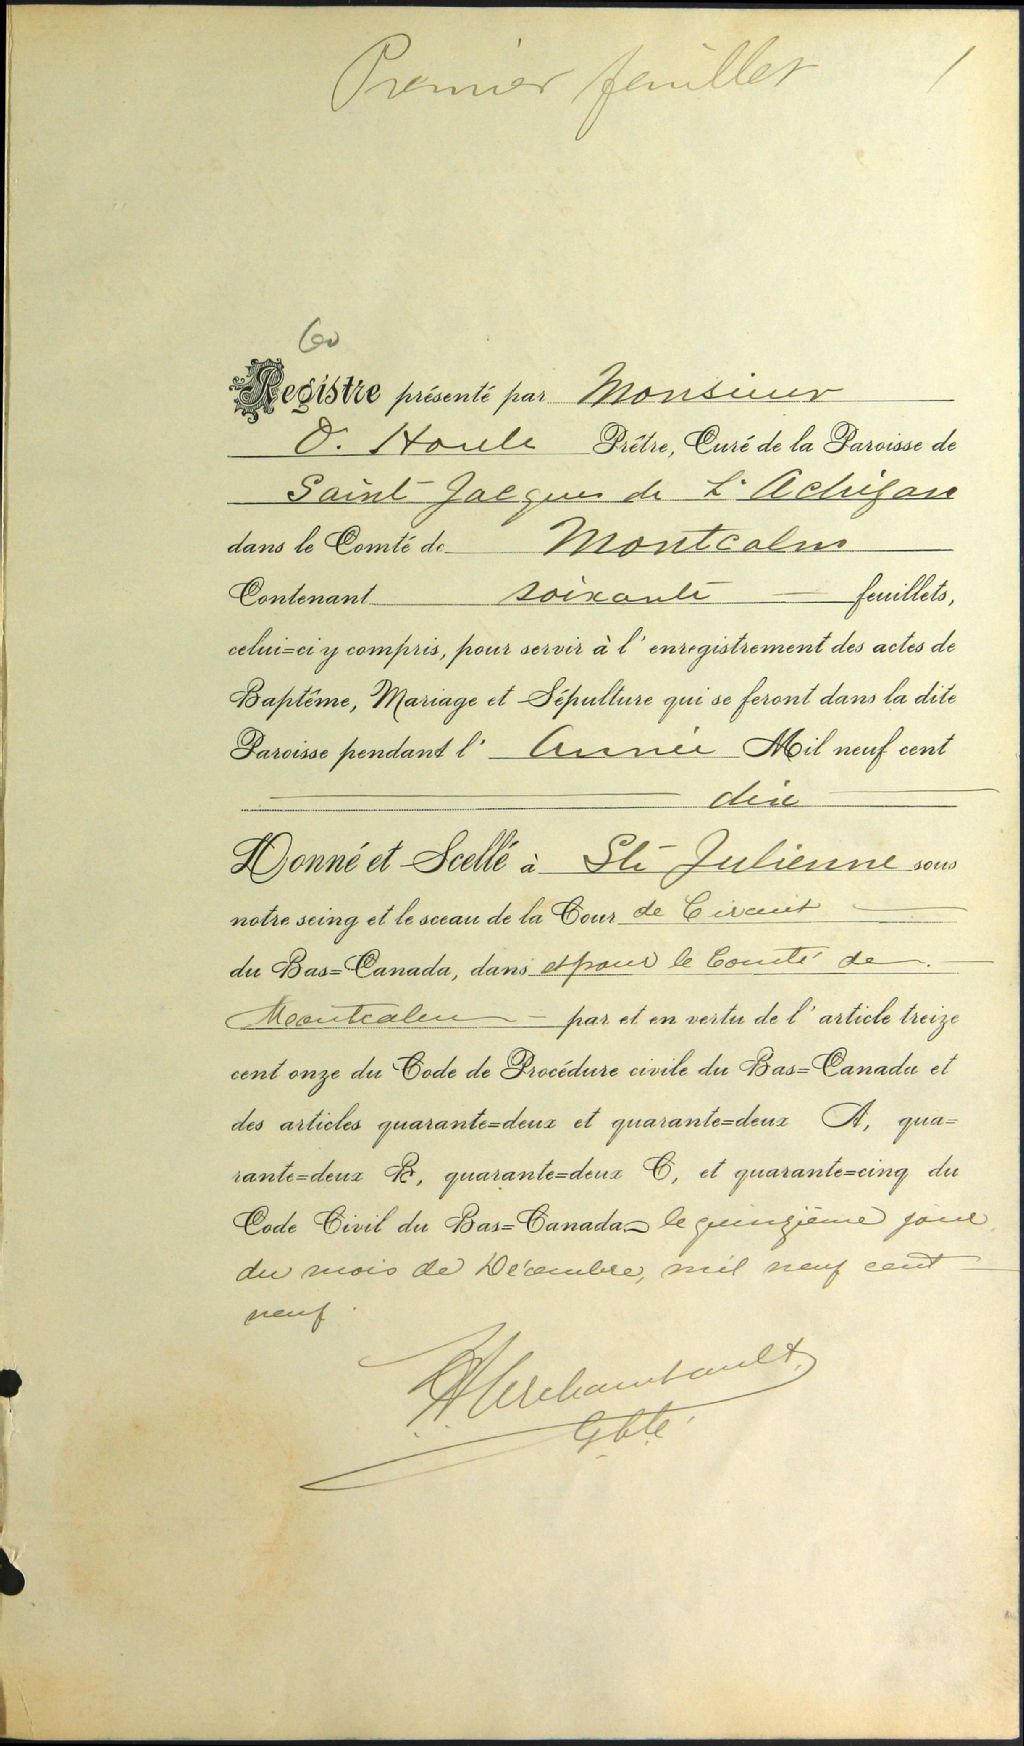 Premier feuillet 1
60
Registre présenté par Monsieur
O. Houle Prêtre, Curé de la Paroisse de
Saint Jacques de L'Achigan
dans le Comté de Montcalm
Contenant soixante feuillets,
celui=ci y compris, pour servir à l'enregistrement des actes de
Baptême, Mariage et Sépulture qui se feront dans la dite
Paroisse pendant l'Année Mil neuf cent
dix
Donné et Scellé à Ste Julienne sous
notre seing et le sceau de la Cour de Circuit
du Bas=Canada, dans et pour le Comté de
Montcalm par et en vertu de l'article treize
cent onze du Code de Procédure civile du Bas=Canada et
des articles quarante=deux et quarante=deux A, qua=
rante=deux B, quarante=deux C, et quarante=cinq du
Code Civil du Bas=Canada le quinzième jour
du mois de Décembre, mil neuf cent
neuf.
Archambault